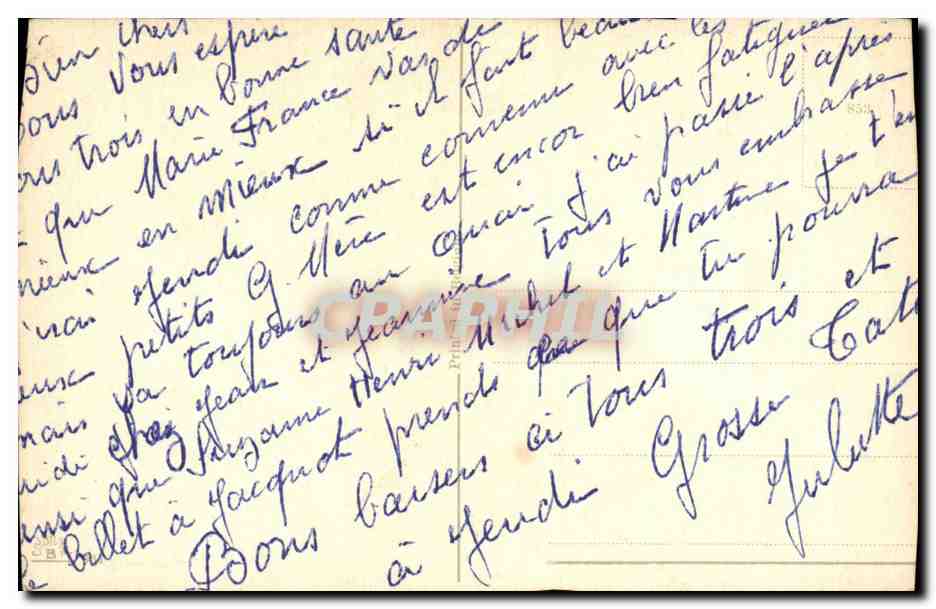 Bien chers
vous espère
trois en bonne santé
que Marie France vas de
mieux en mieux si il fait beau
irai jeudi comme convenu avec les
petits G. Mère est encor bien fatiguée
mais va toujours au j'ai passé l'après
midi chez Jean et Jeannine tous vous embrasse
ainsi que Suzanne Henri Michel et Martine
le billet à Jacquot prends que tu pourra
Bons baisers à tous trois et
à jeudi Grosse Tata
Juliette
853
Printed in
CPAPHIL